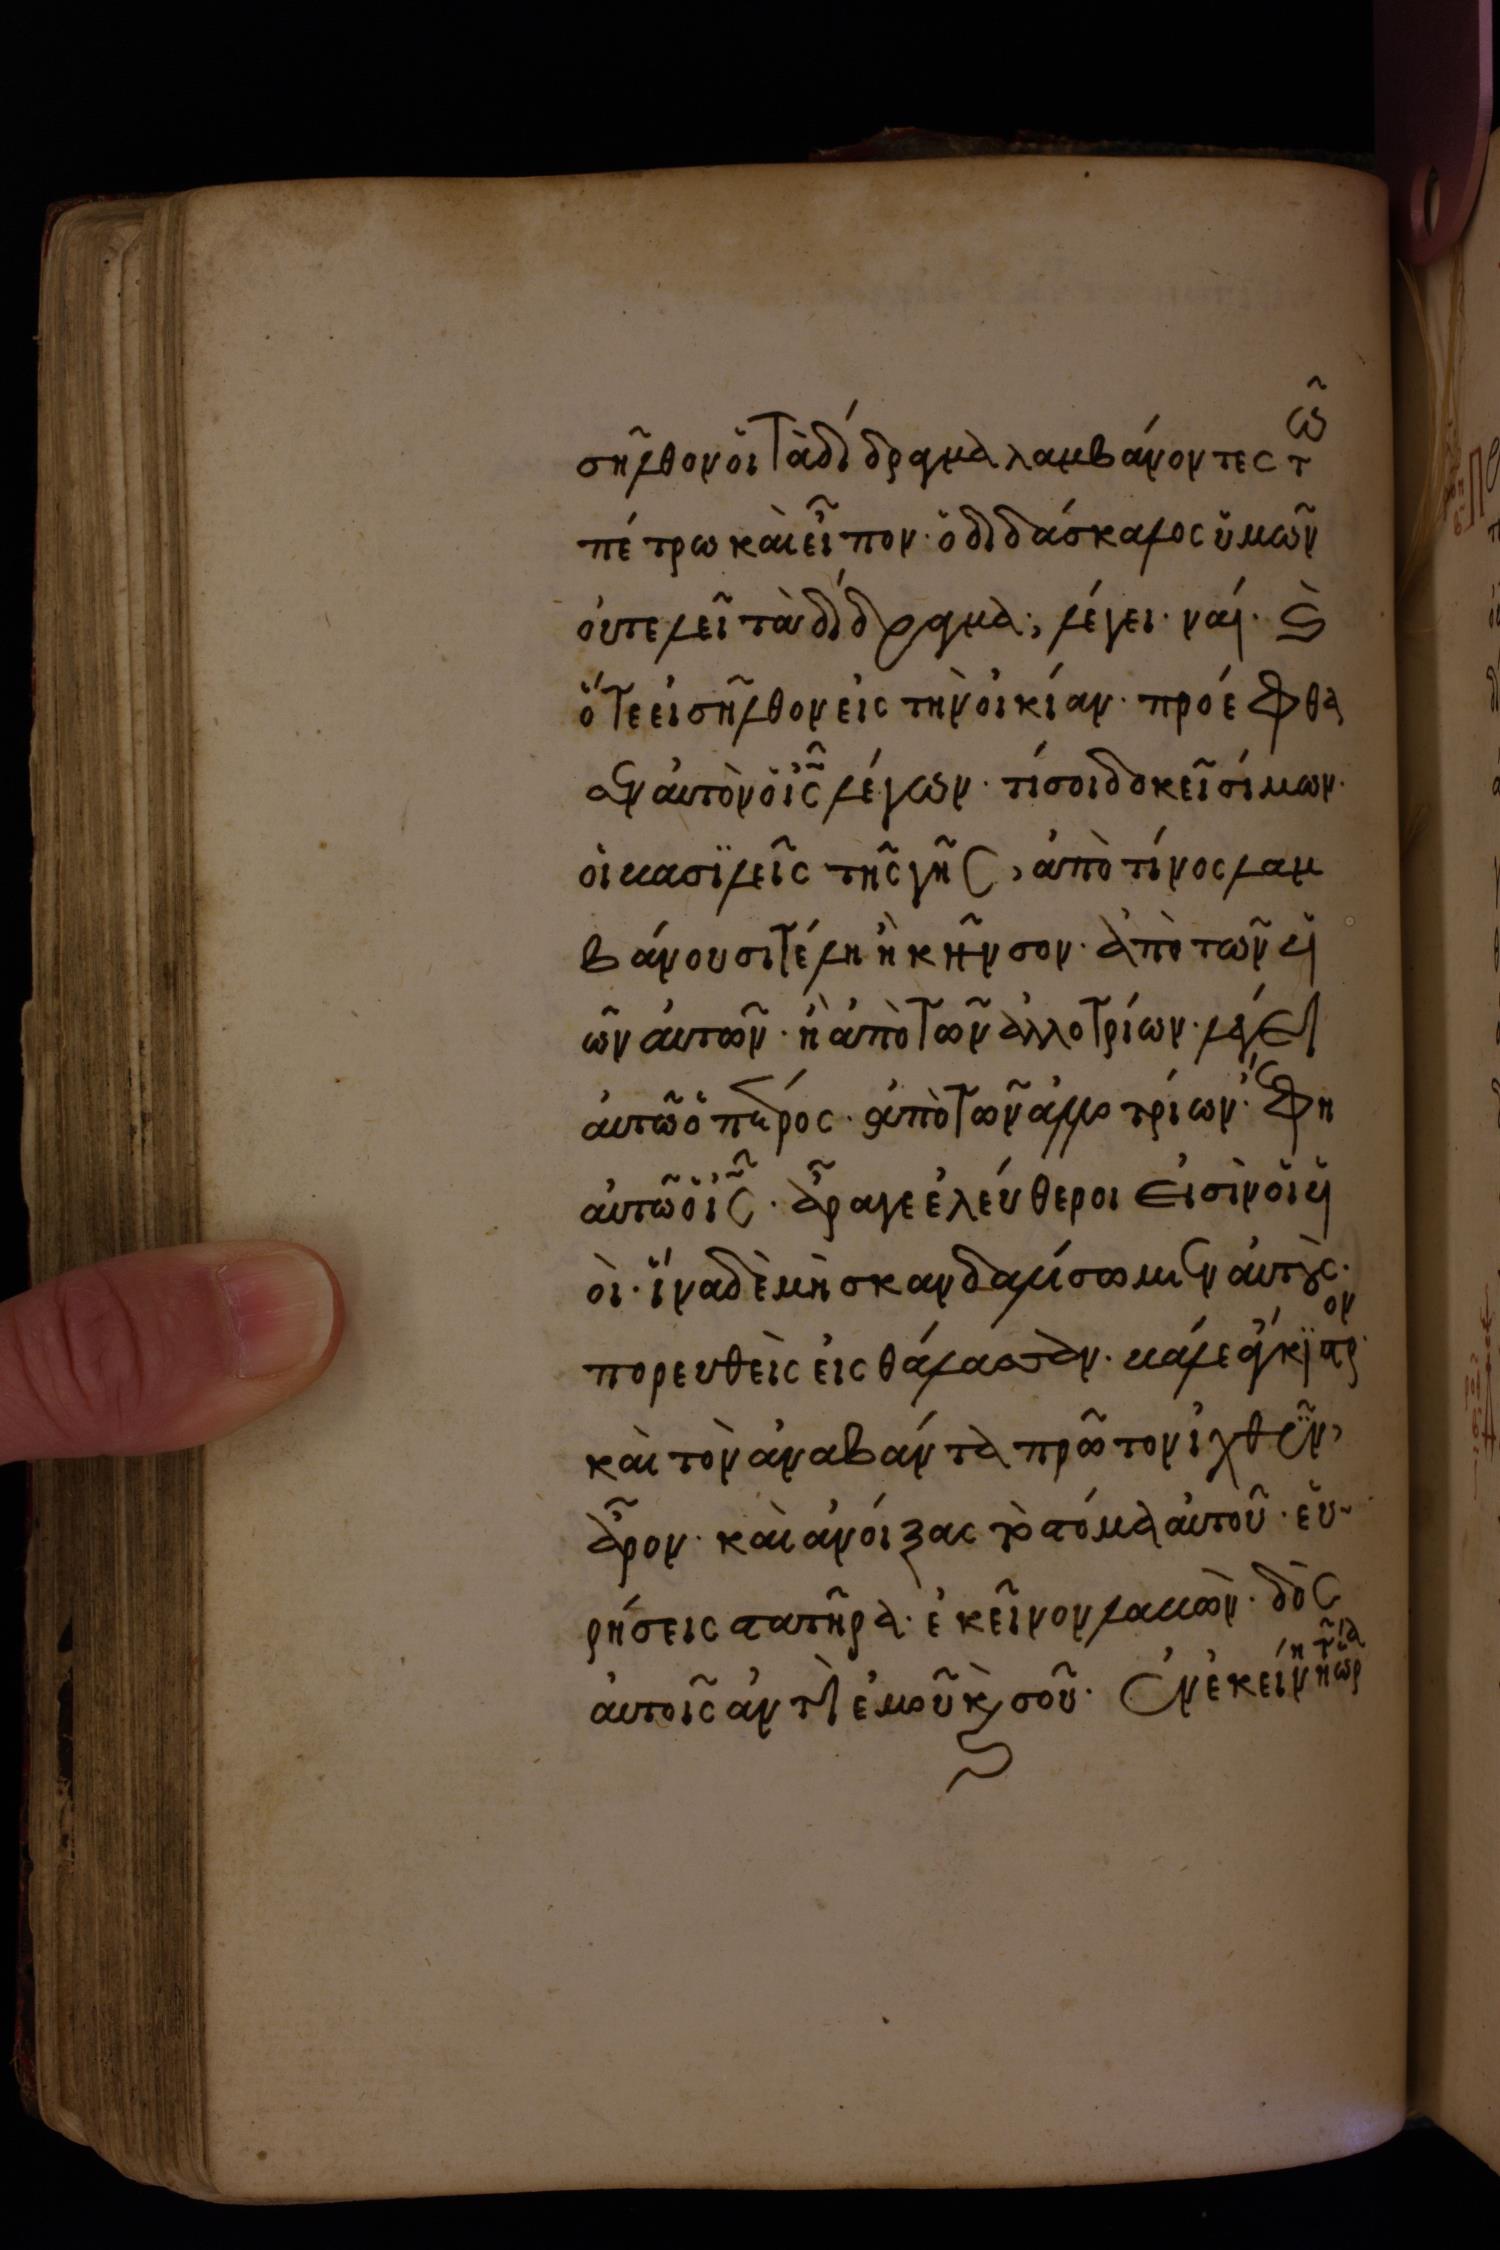 σῆλθον οἱ τὰ δίδραχμα λαμβάνοντες τῶ
πέτρω καὶ εἶπον· ὁ διδάσκαλος ὑμῶν
οὐ τελεῖ τὰ δίδραχμα; λέγει· ναί. καὶ
ὅτε εἰσῆλθον εἰς τὴν οἰκίαν· προέφθα
σεν αὐτὸν ὁ ἰς λέγων· τί σοι δοκεῖ σίμων·
οἱ βασϊλεῖς τῆς γῆς, ἀπὸ τίνος λαμ
βάνουσι τέλη ἢ κῆνσον· ἀπὸ τῶν υἱ
ῶν αὐτῶν· ἢ ἀπὸ τῶν ἀλλοτρίων· λέγει
αὐτῶ ὁ πέτρος· ἀπὸ τῶν ἀλλοτρίων· ἔφη
αὐτῶ ὁ ἰς· ἆραγε ἐλεύθεροι εἰσὶν οἱ υἱ
οὶ· ἵνα δὲ μὴ σκανδαλίσωμεν αὐτοὺς·
πορευθεὶς εἰς θάλασσαν· βάλε ἄγκϊστρον·
καὶ τὸν ἀναβάντα πρῶτον ἰχθῢν,
ἆρον· καὶ ἀνοίξας τὸ στόμα αὐτοῦ· εὑ-
ρήσεις στατῆρα· ἐκεῖνον λαβὼν· δὸς
αὐτοῖς ἀντὶ ἐμοῦ κὲ σοῦ· Ἐν ἐκείνη τῆ ὥρα